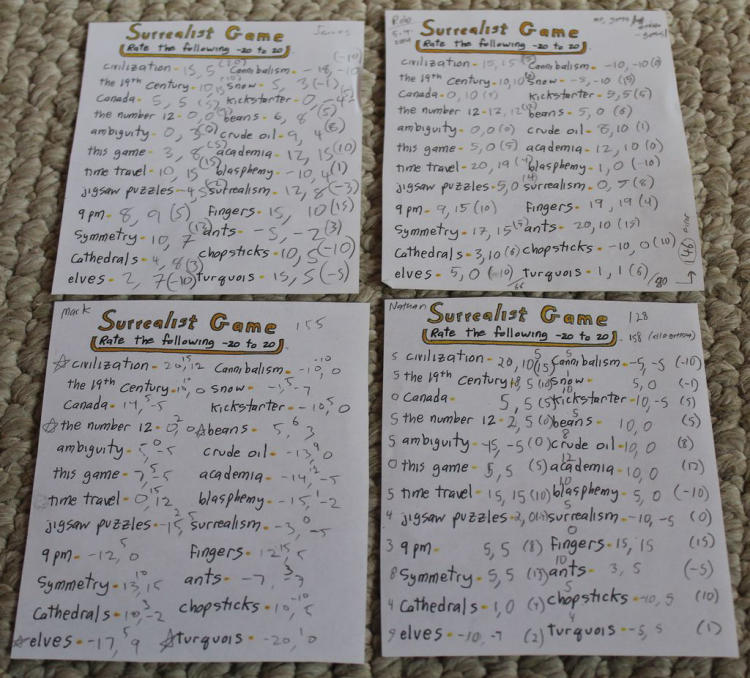 James
Surrealist Game
Rate the following -20 to 20
civilization - 15, 5 Cannibalism - -18, -10 (-10)
the 19th Century - 10, 15 snow - 5, 3 (-1)
Canada - 5, 5 (5) kickstarter - 0,
the number 12 - 0, 0 beans - 6, 8 (5)
ambiguity - 0, 3 (0) crude oil - 9, 4 (8)
this game - 3, 8 (5) academia - 12, 15 (10)
time travel - 10, 15 (15) blasphemy - -10, 4 (1)
jigsaw puzzles - 4, 5 surrealism - 12, 8 (-3)
9pm - 8, 9 (5) Fingers - 15, 10 (15)
Symmetry - 10, 7 (13) ants - -5, -2 (3)
Cathedrals - 4, 8 (3) chopsticks - 10, 5 (-10)
elves - 2, 7 (-10) Turquois - 15, 5 (-5)
Surrealist Game
Rate the following -20 to 20
civilization - 15, 15 Cannibalism - -10, -10
the 19th Century - 10, 10 snow - -5, -10
Canada - 0, 10 kickstarter - 5, 5 (5)
the number 12 - 12, 12 beans - 5, 0 (6)
ambiguity - 0, 0 (0) crude oil - 8, 10 (1)
this game - 5, 0 (5) academia - 12, 10 (0)
time travel - 20, 19 blasphemy - 1, 0 (-10)
jigsaw puzzles - 5, 0 surrealism - 0, 5 (8)
9pm - 9, 15 (10) Fingers - 19, 19 (4)
Symmetry - 17, 15 ants - 20, 10 (15)
Cathedrals - 3, 10 (6) chopsticks - -10, 0 (10)
elves - 5, 0 (-10) Turquois - 1, 1 (6)
66 /80 (46)
Mark
Surrealist Game 155
Rate the following -20 to 20
civilization - 20, 12 Cannibalism - -10, 0
the 19th Century - snow - -7
Canada - 14, -5 kickstarter - -10, 0
the number 12 - 0, 0 beans - 5, 3
ambiguity - -5, -5 crude oil - -13, 0
this game - 7, -5 academia - -14, -5
time travel - 0, 12 blasphemy - -15, -2
jigsaw puzzles - -15, 5 surrealism - -3, -5
9pm - -12, 0 Fingers - 12, 5
Symmetry - 13, 15 ants - -7, 3
Cathedrals - 10, -2 chopsticks - 10, 5
elves - -17, 9 turquois - -20, 0
Nathan
Surrealist Game 128
Rate the following -20 to 20 158
5 civilization - 20, 10 (15) Cannibalism - -5, -5 (-10)
5 the 19th Century 5 (10) snow - 5, 0 (-1)
0 Canada - 5, 5 (5) kickstarter - 10, -5 (5)
5 the number 12 - 2, 5 (0) beans - 10, 0 (5)
5 ambiguity - -5 (0) crude oil - 10, 0 (8)
0 this game - 5, 5 (5) academia - 10, 0 (12)
5 time travel - 15, 15 (10) blasphemy - 5, 0 (-10)
4 jigsaw puzzles - surrealism - -10, -5 (0)
3 9pm - 5, 5 (8) Fingers - 15, 15 (15)
8 Symmetry - 5, 5 (13) ants - 3, 5 (-5)
4 Cathedrals - 1, 0 chopsticks - -10, 5 (10)
9 elves - -10, -7 (2) turquois - -5, 5 (1)